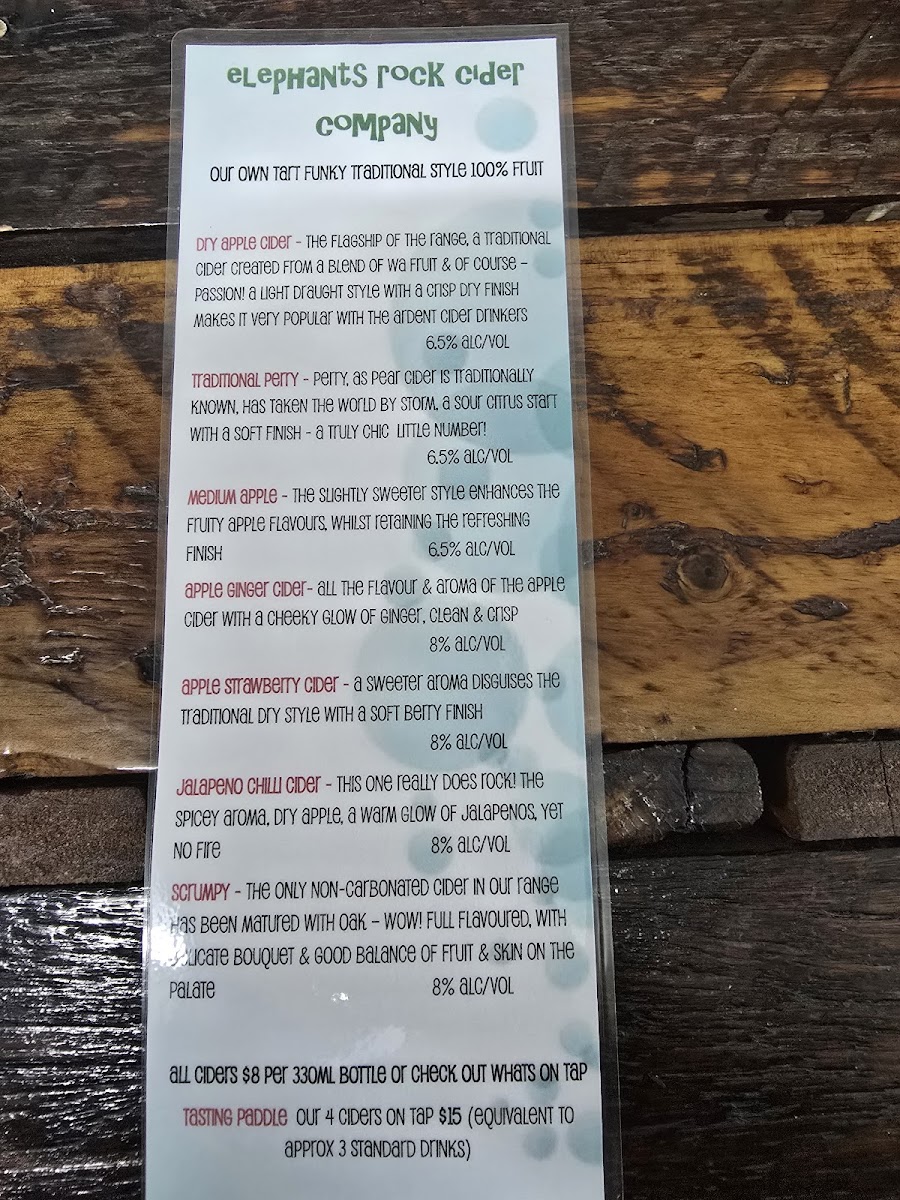 ELEPHANTS ROCK CIDER
COMPANY
OUR OWN TART FUNKY TRADITIONAL STYLE 100% FRUIT
DRY APPLE CIDER - THE FLAGSHIP OF THE RANGE, A TRADITIONAL
CIDER CREATED FROM A BLEND OF WA FRUIT & OF COURSE –
PASSION! A LIGHT DRAUGHT STYLE WITH A CRISP DRY FINISH
MAKES IT VERY POPULAR WITH THE ARDENT CIDER DRINKERS
6.5% ALC/VOL
TRADITIONAL PERRY - PERRY, AS PEAR CIDER IS TRADITIONALLY
KNOWN, HAS TAKEN THE WORLD BY STORM, A SOUR CITRUS START
WITH A SOFT FINISH - A TRULY CHIC LITTLE NUMBER!
6.5% ALC/VOL
MEDIUM APPLE - THE SLIGHTLY SWEETER STYLE ENHANCES THE
FRUITY APPLE FLAVOURS, WHILST RETAINING THE REFRESHING
FINISH 6.5% ALC/VOL
APPLE GINGER CIDER- ALL THE FLAVOUR & AROMA OF THE APPLE
CIDER WITH A CHEEKY GLOW OF GINGER, CLEAN & CRISP
8% ALC/VOL
APPLE STRAWBERRY CIDER - A SWEETER AROMA DISGUISES THE
TRADITIONAL DRY STYLE WITH A SOFT BERRY FINISH
8% ALC/VOL
JALAPENO CHILLI CIDER - THIS ONE REALLY DOES ROCK! THE
SPICEY AROMA, DRY APPLE, A WARM GLOW OF JALAPENOS, YET
NO FIRE 8% ALC/VOL
SCRUMPY - THE ONLY NON-CARBONATED CIDER IN OUR RANGE
HAS BEEN MATURED WITH OAK – WOW! FULL FLAVOURED, WITH
DELICATE BOUQUET & GOOD BALANCE OF FRUIT & SKIN ON THE
PALATE 8% ALC/VOL
ALL CIDERS $8 PER 330ML BOTTLE OR CHECK OUT WHATS ON TAP
TASTING PADDLE OUR 4 CIDERS ON TAP $15 (EQUIVALENT TO
APPROX 3 STANDARD DRINKS)